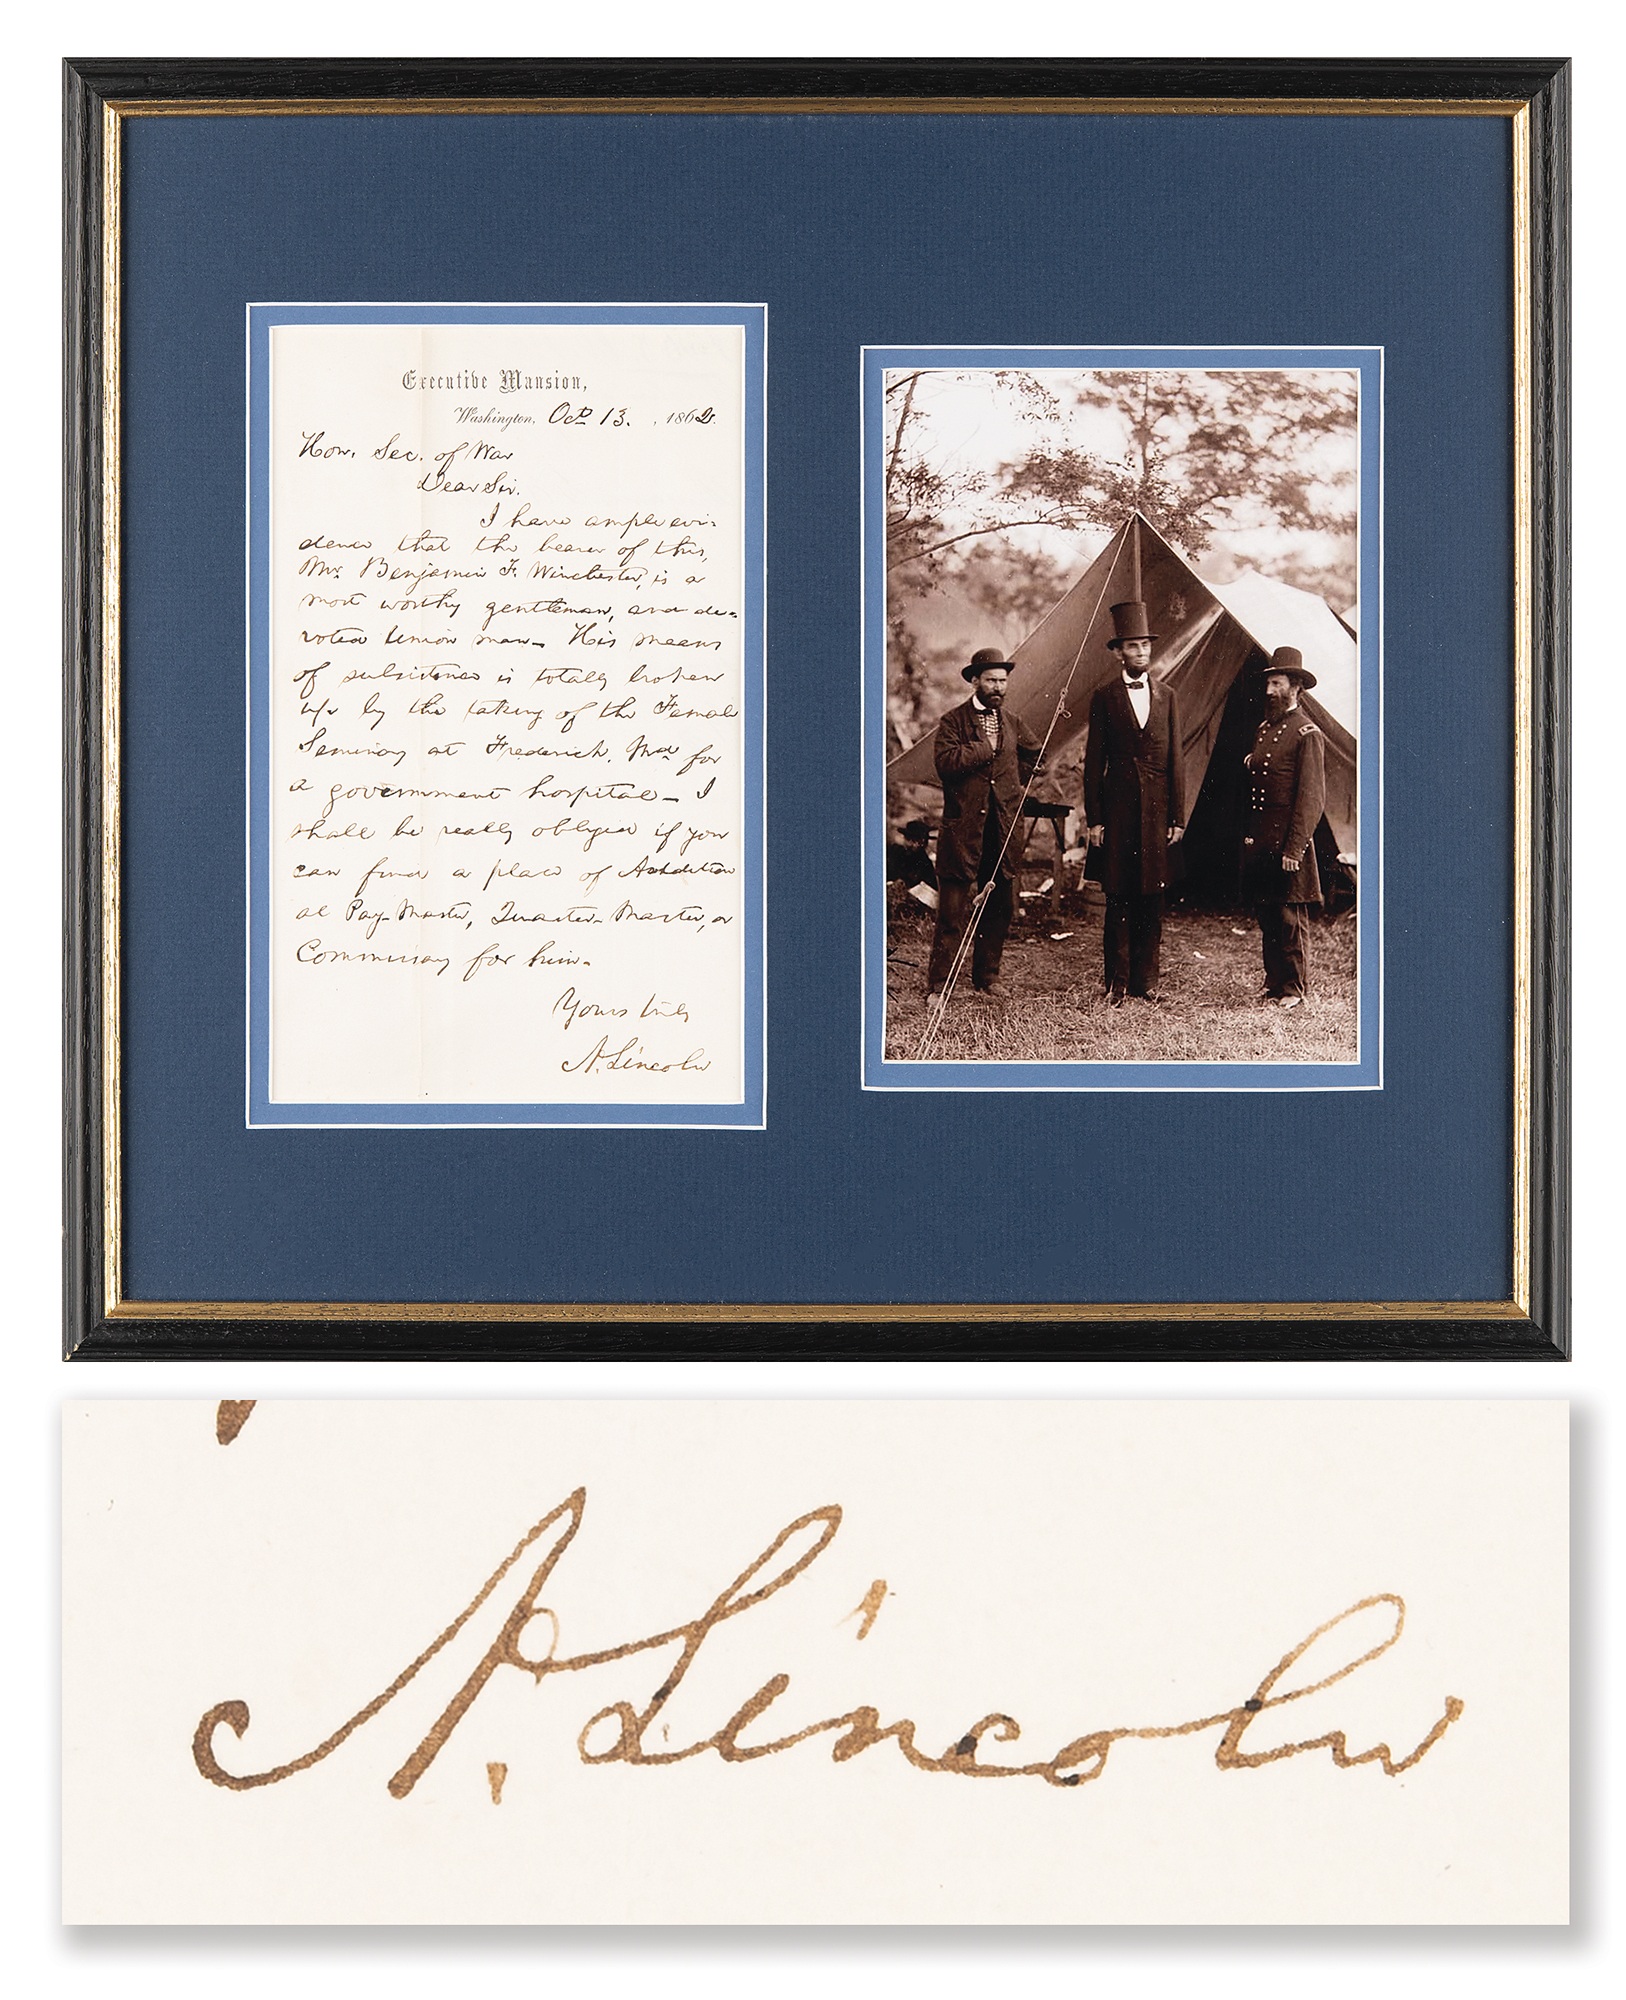 Executive Mansion,
Washington, Oct 13. , 1862.
Hon. Sec. of War
Dear Sir.
I have ample evi-
dence that the bearer of this,
Mr. Benjamin F. Winchester, is a
most worthy gentleman, and de-
voted Union man- His means
of subsistence is totally broken
up by the taking of the Female
Seminary at Frederick, Md. for
a government hospital- I
shall be really obliged if you
can find a place of
al Pay-Master, Quarter-Master, or
Commissary for him-
Yours truly
A. Lincoln
A. Lincoln